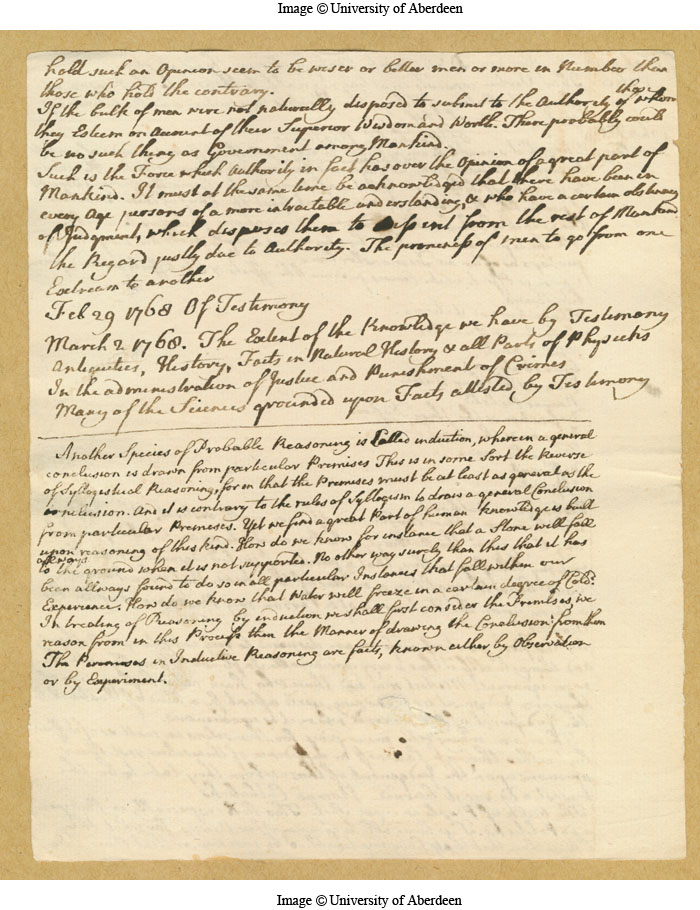 Image © University of Aberdeen
hold such an Opinion seem to be wiser or better men or more in Number than
those who hold the contrary.
If the bulk of men were not naturally disposed to submit to the Authority of those whom
they Esteem on Account of their Superior Wisdom and Worth. There probably could
be no such thing as Government among Mankind.
Such is the Force which Authority in fact has over the Opinion of a great part of
Mankind. It must at the same time be acknowledged that there have been in
every Age persons of a more intractable understanding, & who have a certain obstinacy
of Judgment, which disposes them to dissent from the rest of Mankind
the Regard justly due to Authority. The proneness of men to go from one
Extream to another
Feb 29 1768 Of Testimony
March 2 1768. The Extent of the Knowledge we have by Testimony
Antiquities, History, Facts in Natural History & all Parts of Physicks
In the administration of Justice and Punishment of Crimes
Many of the Sciences grounded upon Facts attested by Testimony
Another Species of Probable Reasoning is Called induction, wherein a general
conclusion is drawn from particular Premises This is in some Sort the Reverse
of Syllogistical Reasoning, for in that the Premises must be at least as general as the
conclusion. And it is contrary to the rules of Syllogism to draw a general Conclusion
from particular Premises. Yet we find a great Part of human knowledge is built
upon reasoning of this kind. How do we know for instance that a Stone will fall
allways
to the ground when it is not supported. No other way surely than this that it has
been allways found to do so in all particular Instances that fall within our
Experience. How do we know that Water will freeze in a certain degree of Cold?
In treating of Reasoning by induction we shall first consider the Premises, we
reason from in this Process then the Manner of drawing the Conclusion from them
The Permises in Inductive Reasoning are facts, known either by Observation
or by Experiment.
Image © University of Aberdeen